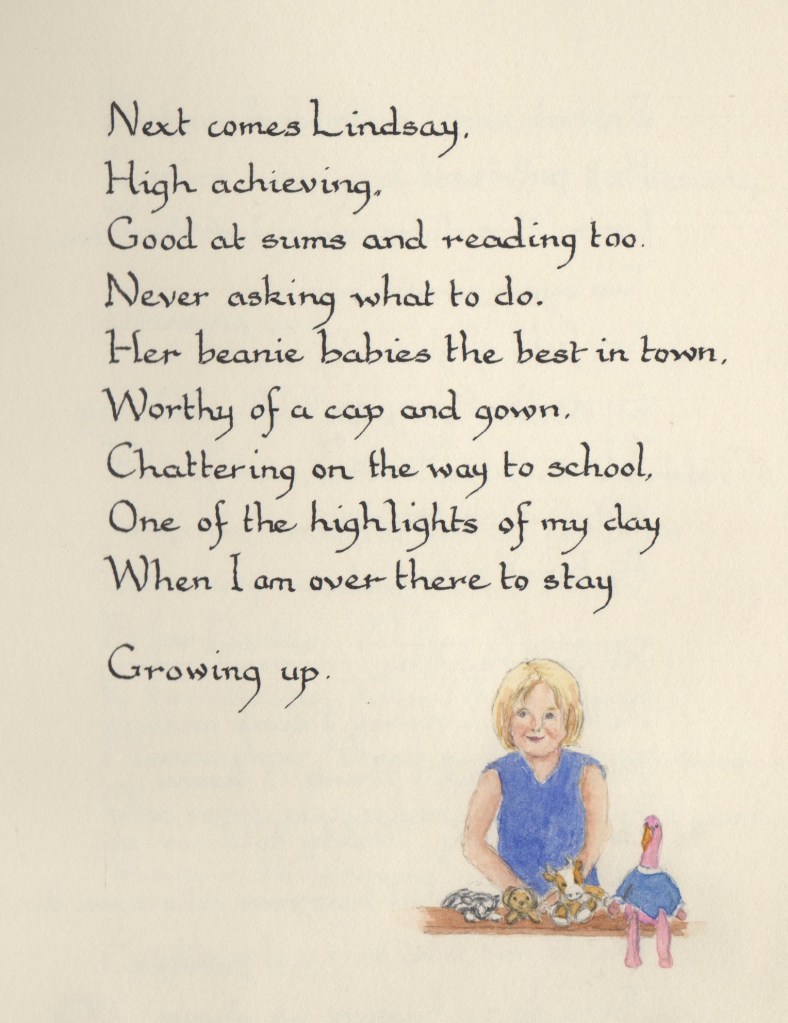 Next comes Lindsay,
High achieving,
Good at sums and reading too.
Never asking what to do.
Her beanie babies the best in town,
Worthy of a cap and gown.
Chattering on the way to school,
One of the highlights of my day
When I am over there to stay
Growing up.